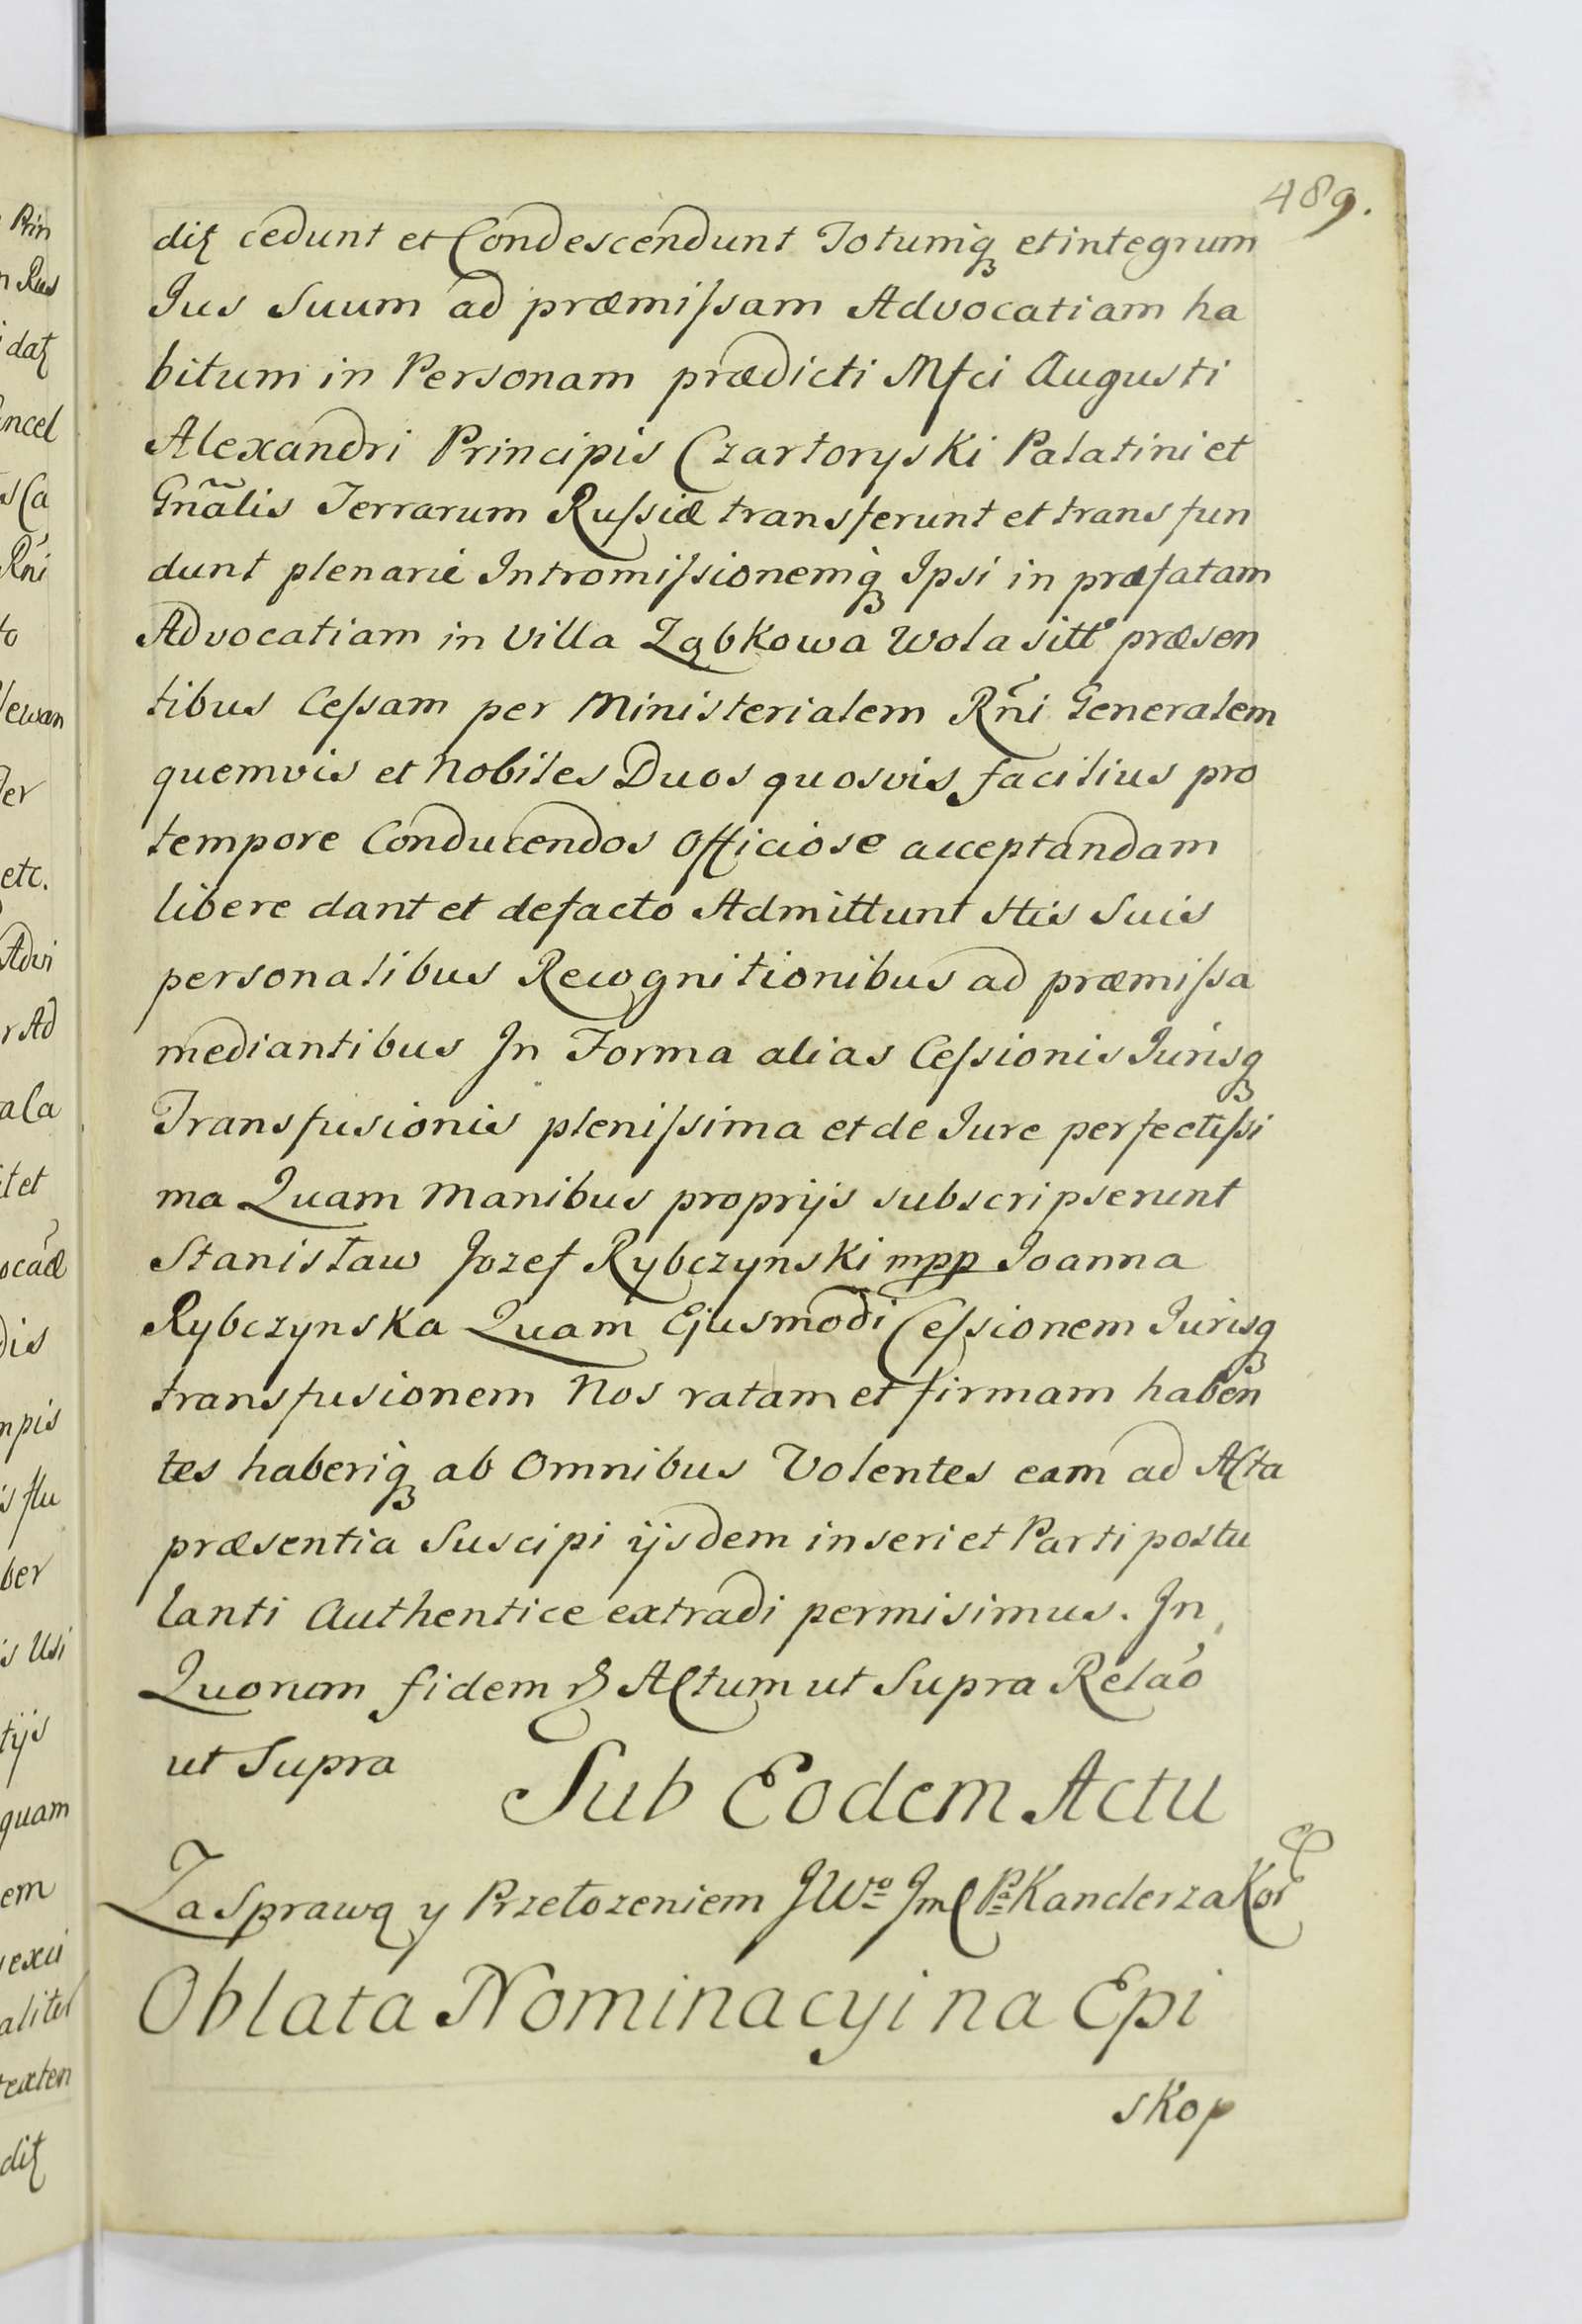 489.
ditꝫ cedunt et Condescendunt Totumqꝫ et integrum
Jus Suum ad præmiſsam Advocatiam ha
bitum in Personam prædicti Mfci Augusti
Alexandri Principis Czartoryski Palatini et
Gnãlis Terrarum Ruſsiæ transferunt et transfun
dunt plenarie Intromiſsionemqꝫ Ipsi in præfatam
Advocatiam in Villa Ząbkowa Wola sittᵒ præsen
tibus Ceſsam per Ministerialem Rñi Generalem
quemvis et Nobiles Duos quosvis facilius pro
tempore Conducendos Officiose acceptandam
libere dant et defacto Admittunt Htis Suis
personalibus Recognitionibus ad præmiſsa
mediantibus In Forma alias Ceſsionis Jurisqꝫ
Transfusionis pleniſsima et de Jure perfectiſsi
ma Quam Manibus proprijs subscripserunt
Stanisław Jozef Rybczynski mpp Joanna
Rybczynska Quam Ejusmodi Ceſsionem Jurisqꝫ
transfusionem Nos ratam et firmam haben
tes haberiqꝫ ab Omnibus Volentes eam ad Acta
præsentia Suscipi ijsdem inseri et Parti postu
lanti Authentice extradi permisimus. In
Quorum fidem & Actum ut Supra Relaõ
ut Supra
Sub Eodem Actu
Za Sprawą y Przełozeniem JWº JmC Pª Kanclerza Kor
Oblata Nominacyi na Epi
skop
Prin
datꝫ
ncel
Rñi
to
lewan
er
etc.
Advi
r Ad
ala
it et
ocaæ
dis
mpis
ber
is Usi
tijs
quam
em
exci
aliter
exten
ditꝫ